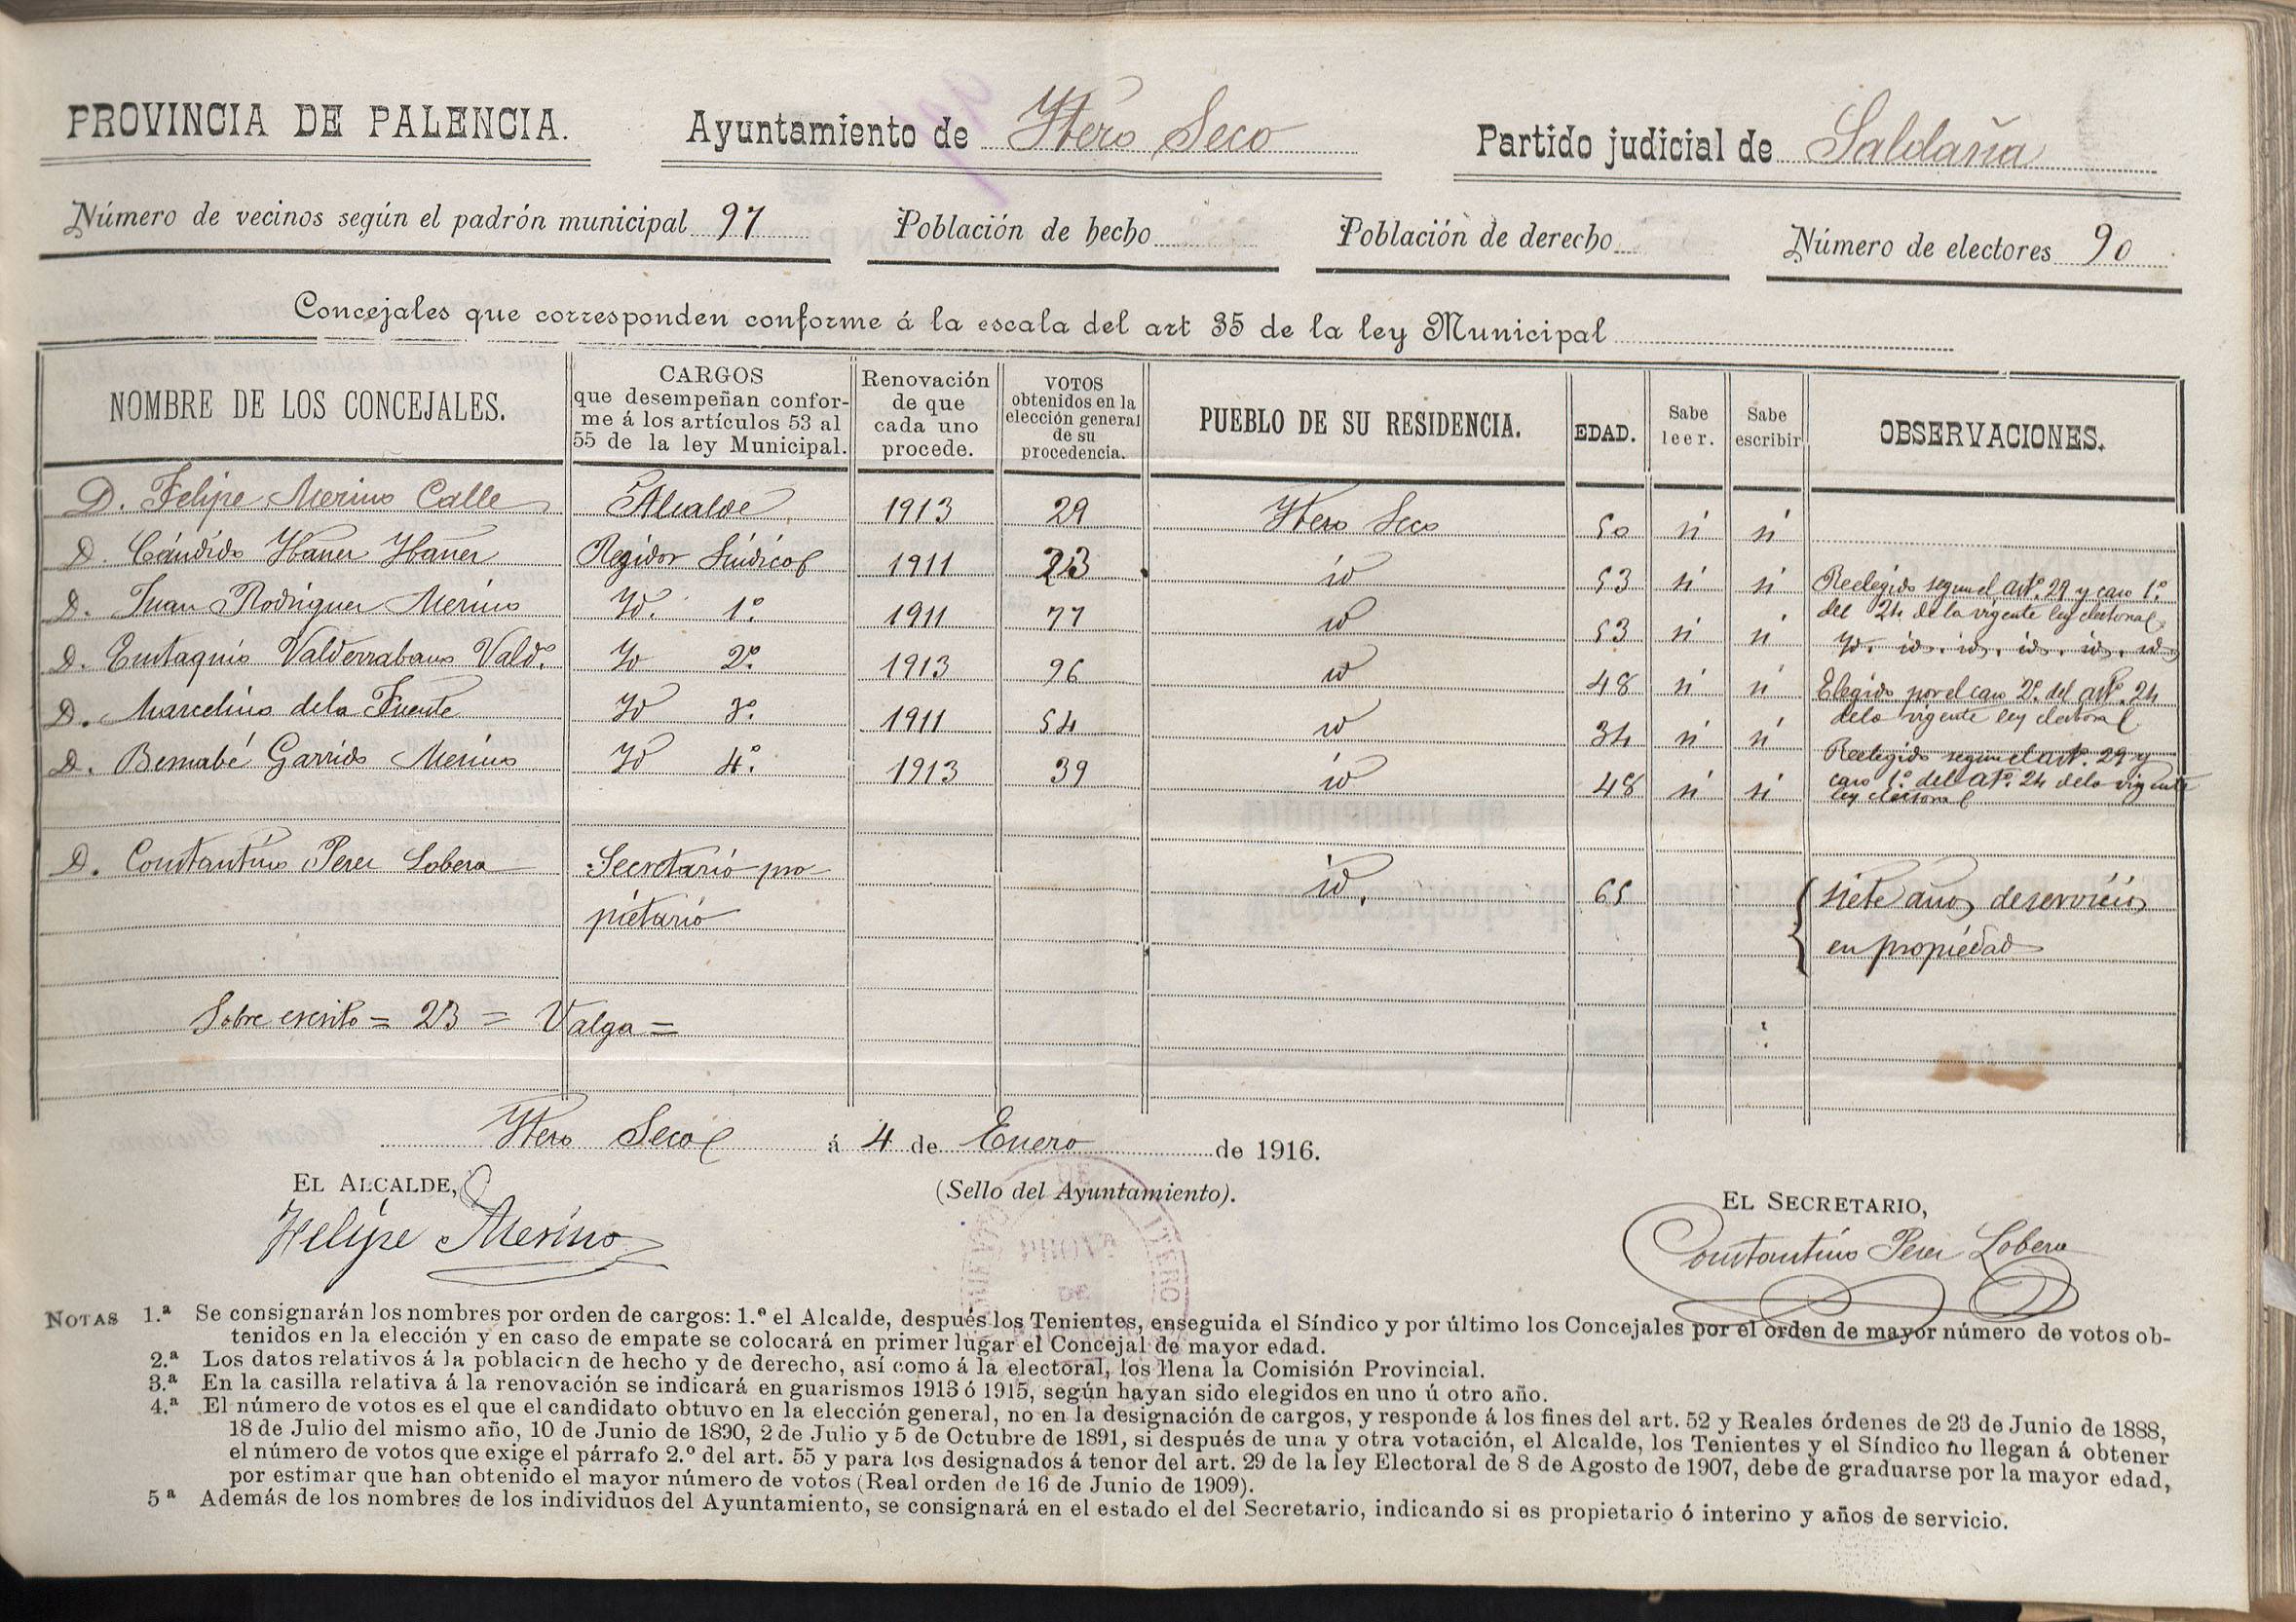 PROVINCIA DE PALENCIA. Ayuntamiento de Ytero Seco Partido judicial de Saldaña
Número de vecinos según el padrón municipal 97 Población de hecho Población de derecho Número de electores 90
Concejales que corresponden conforme á la escala del art 35 de la ley Municipal
NOMBRE DE LOS CONCEJALES. CARGOS que desempeñan confor- me á los artículos 53 al 55 de la ley Municipal. Renovación de que cada uno procede. VOTOS obtenidos en la elección general de su procedencia. PUEBLO DE SU RESIDENCIA. EDAD. Sabe leer. Sabe escribir OBSERVACIONES.
D. Felipe Merino Calle Alcalde 1913 29 Ytero Seco 50 si si
D. Cándido Ybañer Ybañer Regidor Sindico 1911 23 id 53 si si Reelegido segun el artº. 29 y caso 1º.
del 24 de la vigente ley electoral
D. Juan Rodriguer Merino Yd. 1º. 1911 77 id 53 si si Yd. id. id. id. id. id
D. Eustaquio Valderrabano Valdº. Yd 2º. 1913 96 id 48 si si Elegido por el caso 2º. del artº. 24
dela vigente ley electoral
D. Marcelino dela Fuente Yd 3º. 1911 54 id 34 si si
D. Bernabé Garrido Merino Yd 4º. 1913 39 id 48 si si Reelegido segun el artº. 29 y
caso 1º. del artº. 24 dela vigente
ley electoral
D. Constantino Perer Lobera Secretario pro id. 65 siete años de servicios
pietario en propiedad
Sobre escrito = 23 = Valga =
Ytero Seco á 4 de Enero de 1916.
EL ALCALDE, (Sello del Ayuntamiento). EL SECRETARIO,
Felipe Merino Constantino Perer Lobera
NOTAS 1.ª Se consignarán los nombres por orden de cargos: 1.º el Alcalde, después los Tenientes, enseguida el Síndico y por último los Concejales por el orden de mayor número de votos ob-
tenidos en la elección y en caso de empate se colocará en primer lugar el Concejal de mayor edad.
2.ª Los datos relativos á la población de hecho y de derecho, así como á la electoral, los llena la Comisión Provincial.
3.ª En la casilla relativa á la renovación se indicará en guarismos 1913 ó 1915, según hayan sido elegidos en uno ú otro año.
4.ª El número de votos es el que el candidato obtuvo en la elección general, no en la designación de cargos, y responde á los fines del art. 52 y Reales órdenes de 23 de Junio de 1888,
18 de Julio del mismo año, 10 de Junio de 1890, 2 de Julio y 5 de Octubre de 1891, si después de una y otra votación, el Alcalde, los Tenientes y el Síndico no llegan á obtener
el número de votos que exige el párrafo 2.º del art. 55 y para los designados á tenor del art. 29 de la ley Electoral de 8 de Agosto de 1907, debe de graduarse por la mayor edad,
por estimar que han obtenido el mayor número de votos (Real orden de 16 de Junio de 1909).
5ª Además de los nombres de los individuos del Ayuntamiento, se consignará en el estado el del Secretario, indicando si es propietario ó interino y años de servicio.